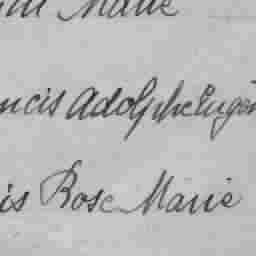 Marie
ncis Adolphe Eugèn
is Rose Marie